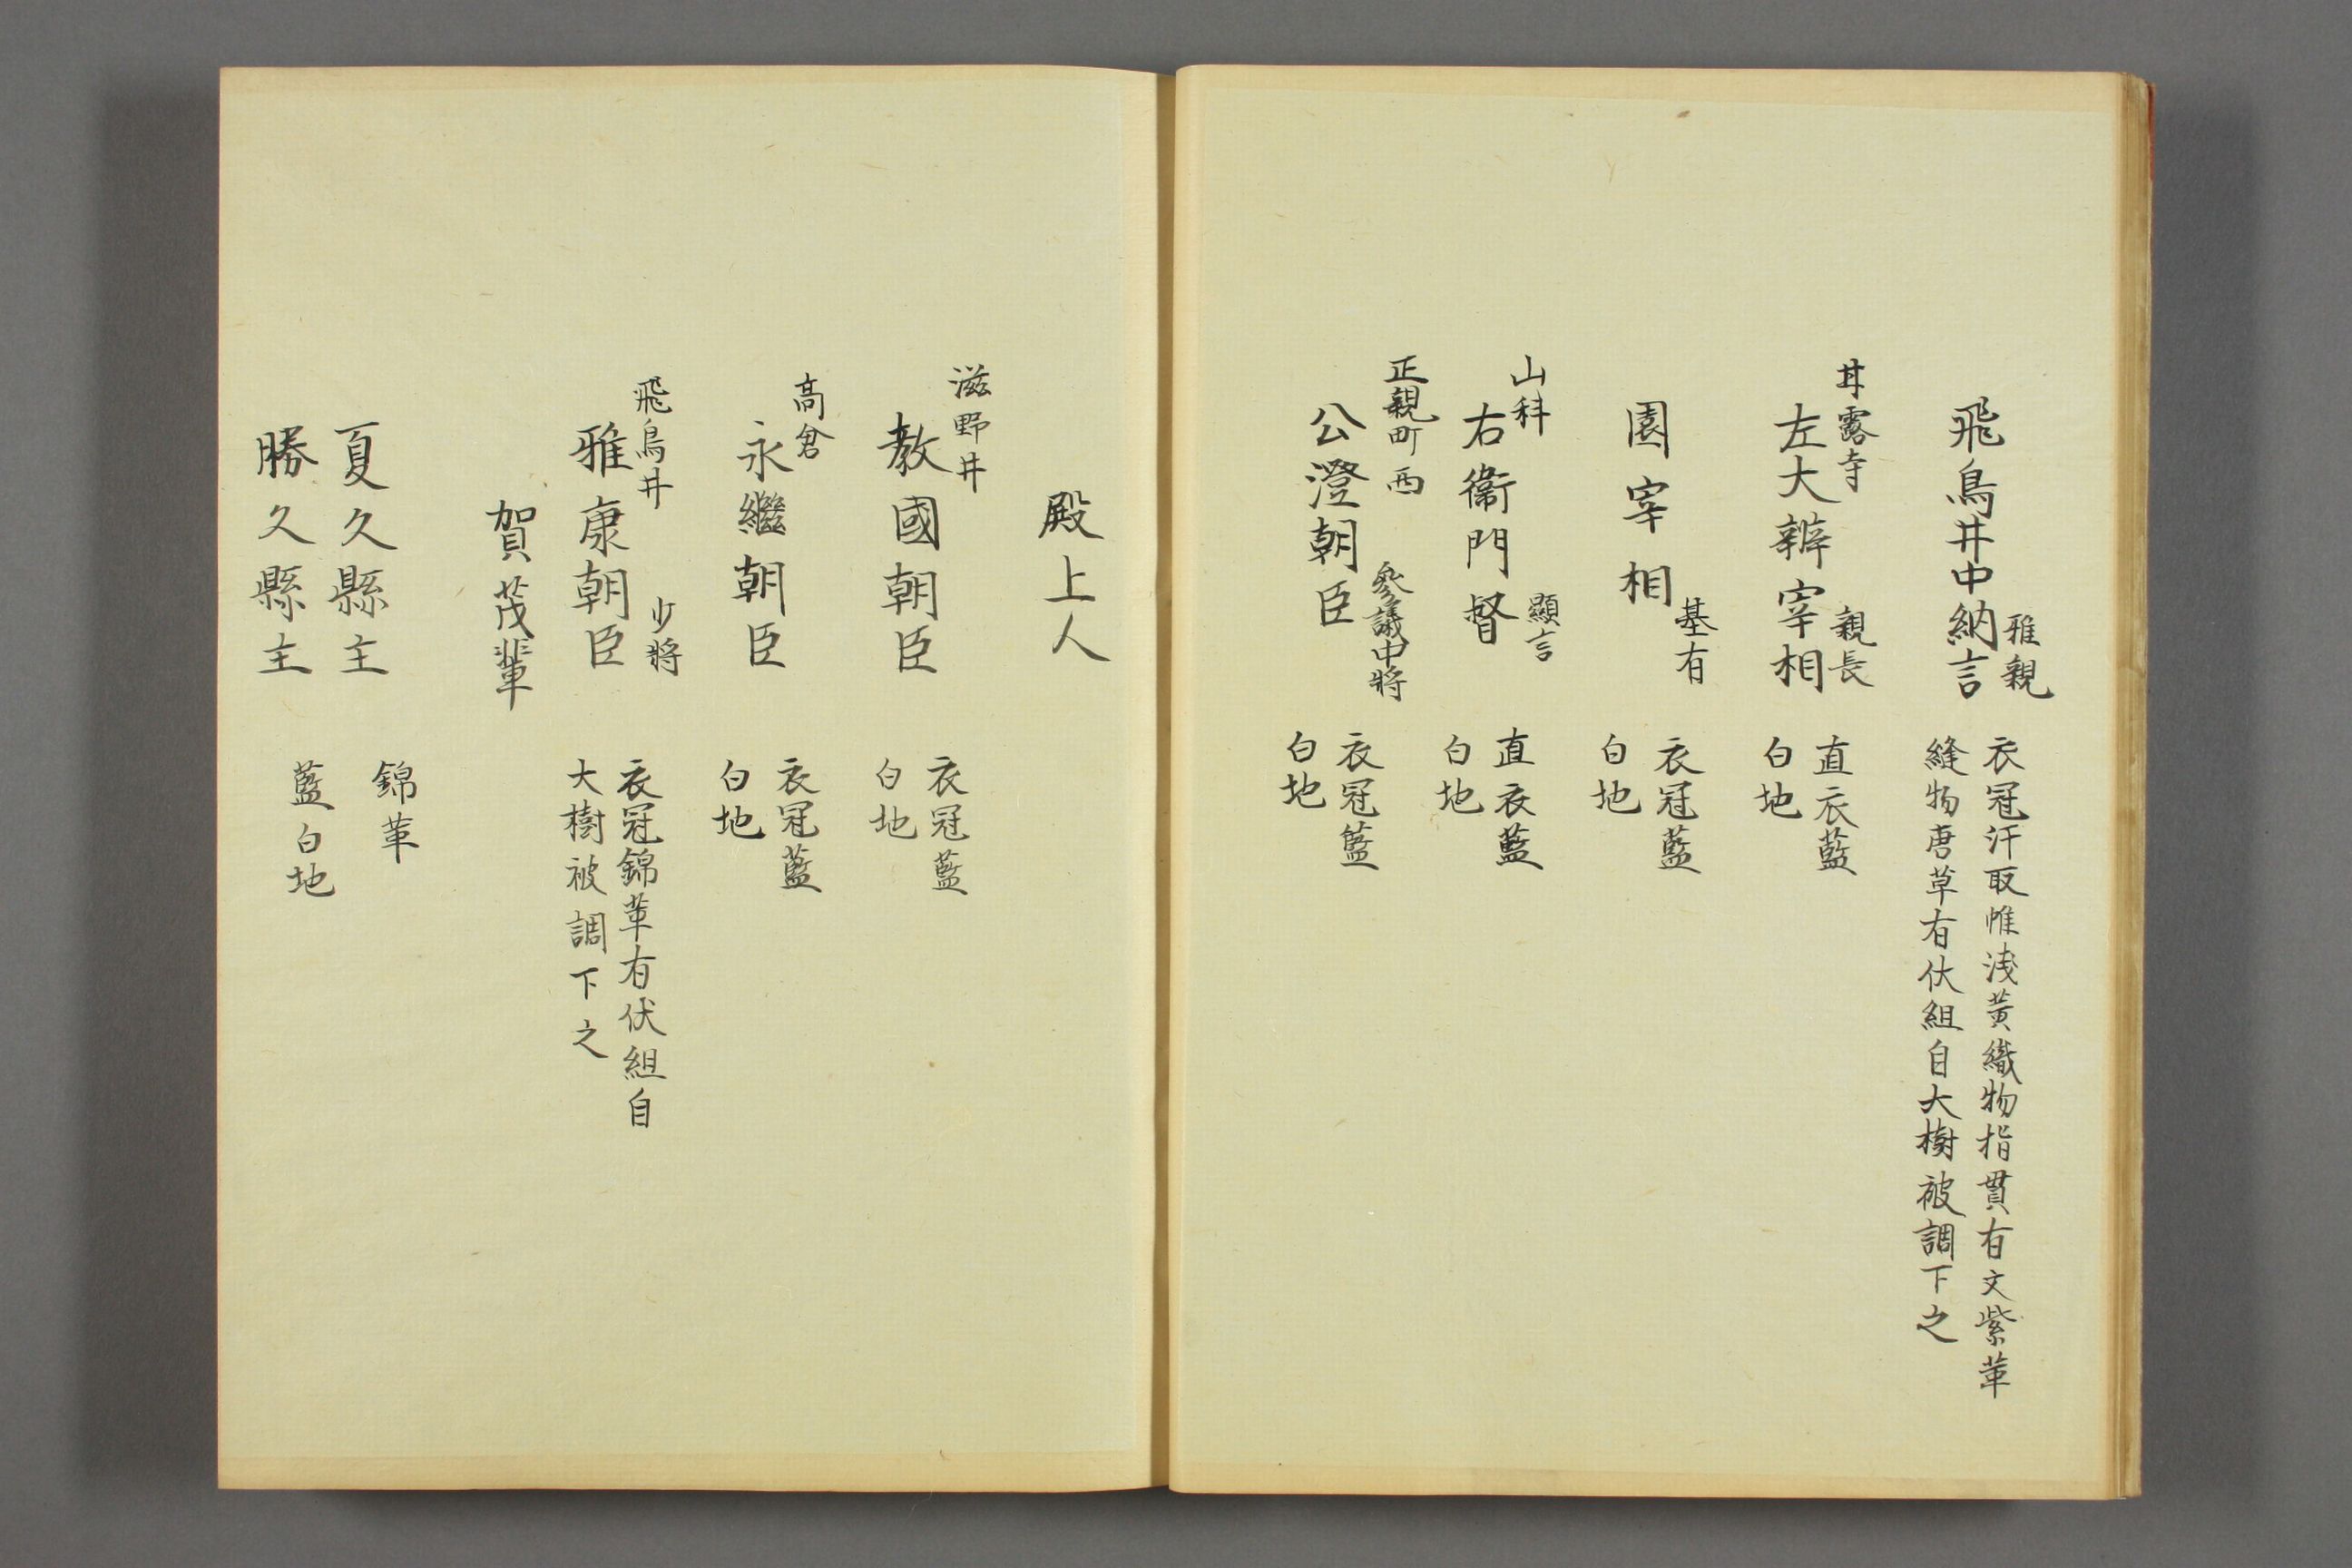 飛鳥井中納言
雅親
衣冠汗取帷浅黄織物指貫有文紫革
縫物唐草有伏組自大樹被調下之
甘露寺
左大辨宰相
親長
直衣藍
白地
園宰相
基有
衣冠藍
白地
山科
右衞門督
顯言
直衣藍
白地
正親町西
公澄朝臣
參議中将
衣冠藍
白地
殿上人
滋野井
教國朝臣
衣冠藍
白地
高倉
永繼朝臣
衣冠藍
白地
飛鳥井
雅康朝臣
少将
衣冠錦革有伏組自
大樹被調下之
賀茂輩
夏久縣主
錦革
勝久縣主
藍白地